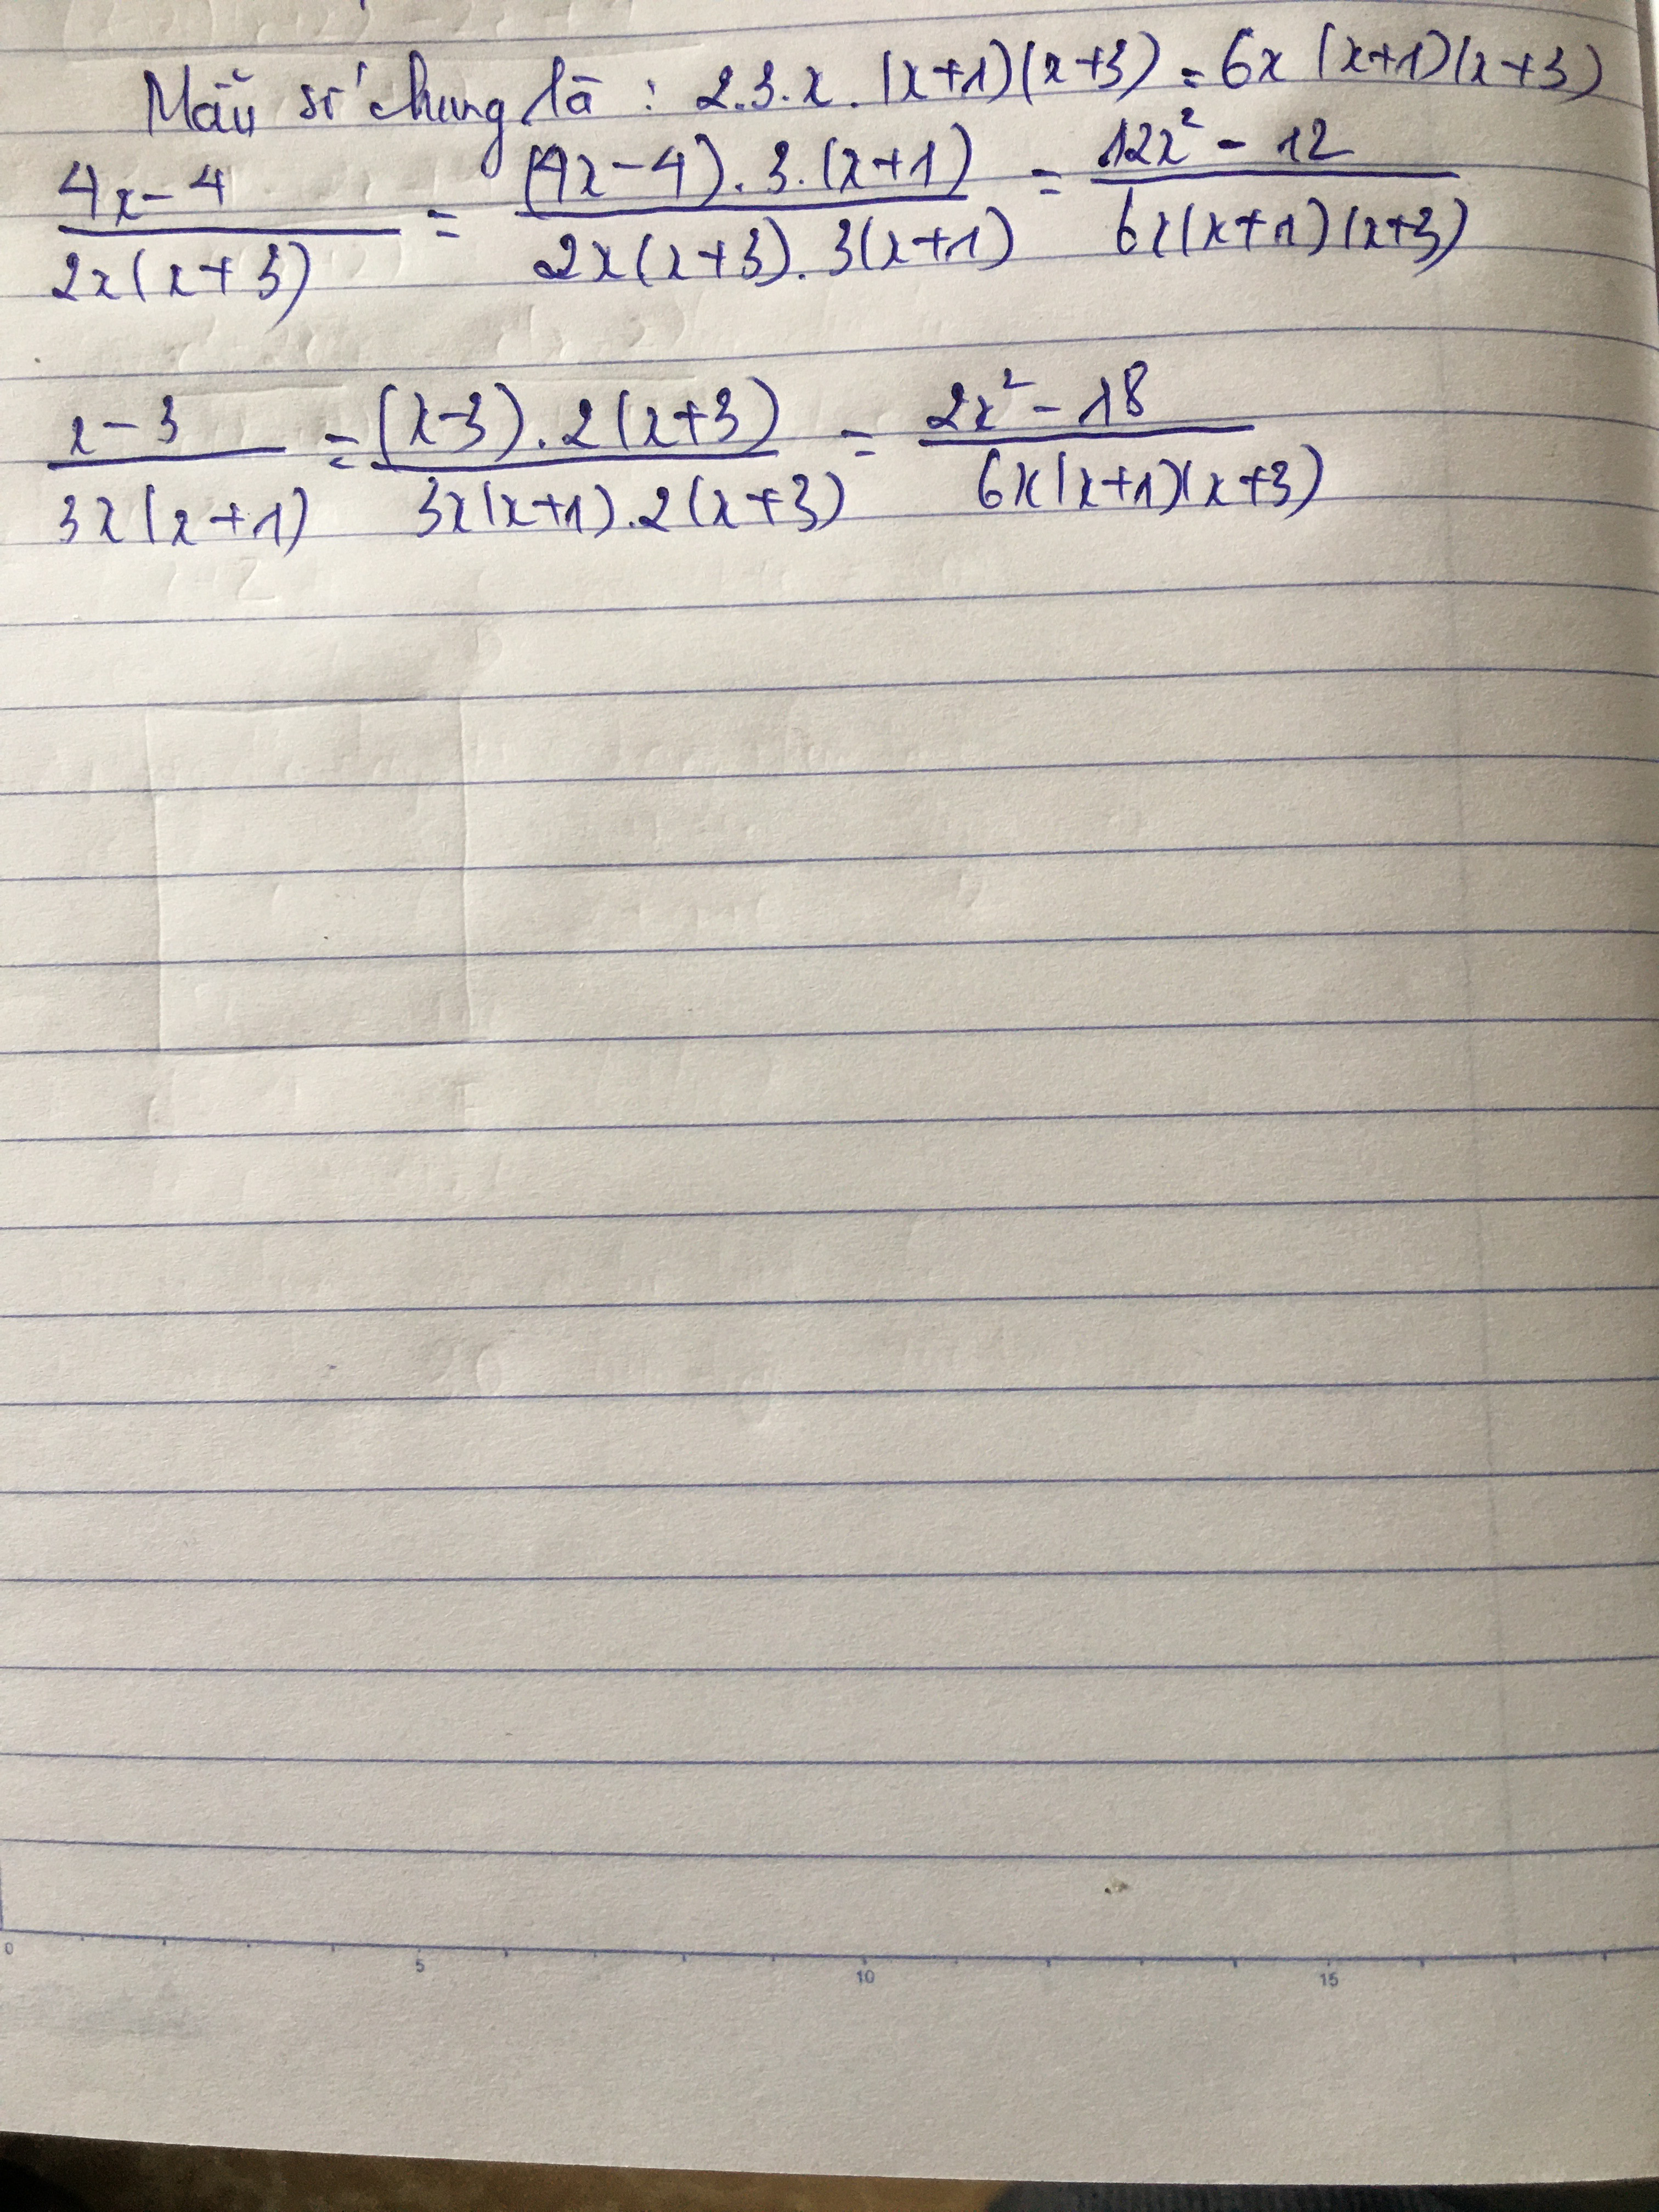 Mẫu số chung là : 2.3.x.(x+1)(x+3) = 6x(x+1)(x+3)
(4x-4)/(2x(x+3)) = ((4x-4).3.(x+1))/(2x(x+3).3(x+1)) = (12x²-12)/(6x(x+1)(x+3))
(x-3)/(3x(x+1)) = ((x-3).2(x+3))/(3x(x+1).2(x+3)) = (2x²-18)/(6x(x+1)(x+3))
0 5 10 15